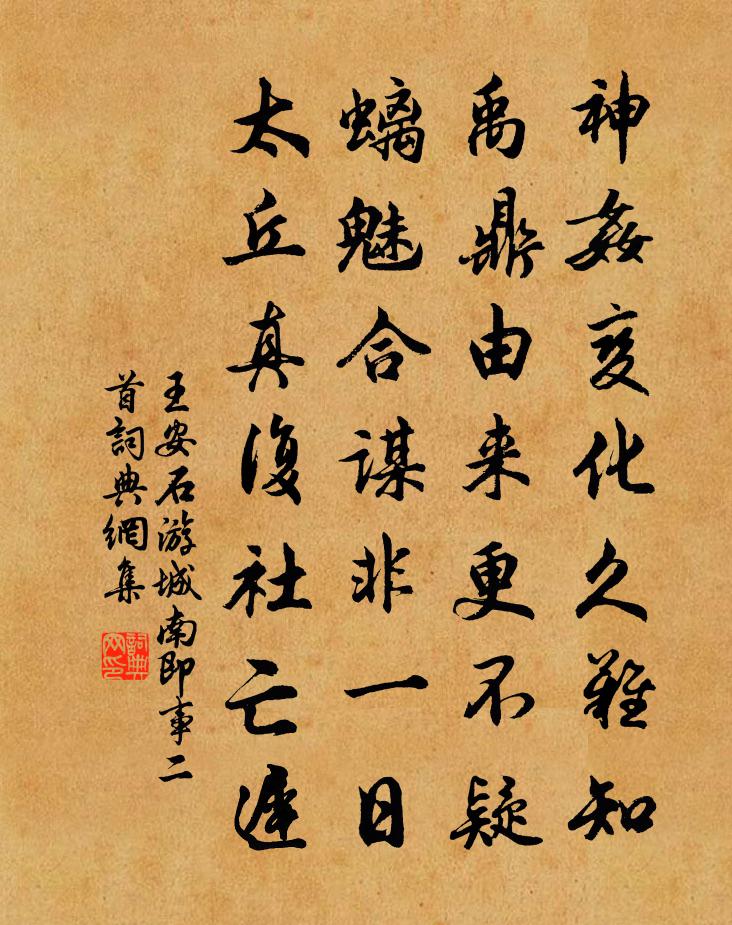 神姦变化久難知
禹鼎由来更不疑
螭魅合謀非一日
太丘真復社亡遲
王安石游城南即事二
首詞典網集
詞典网印